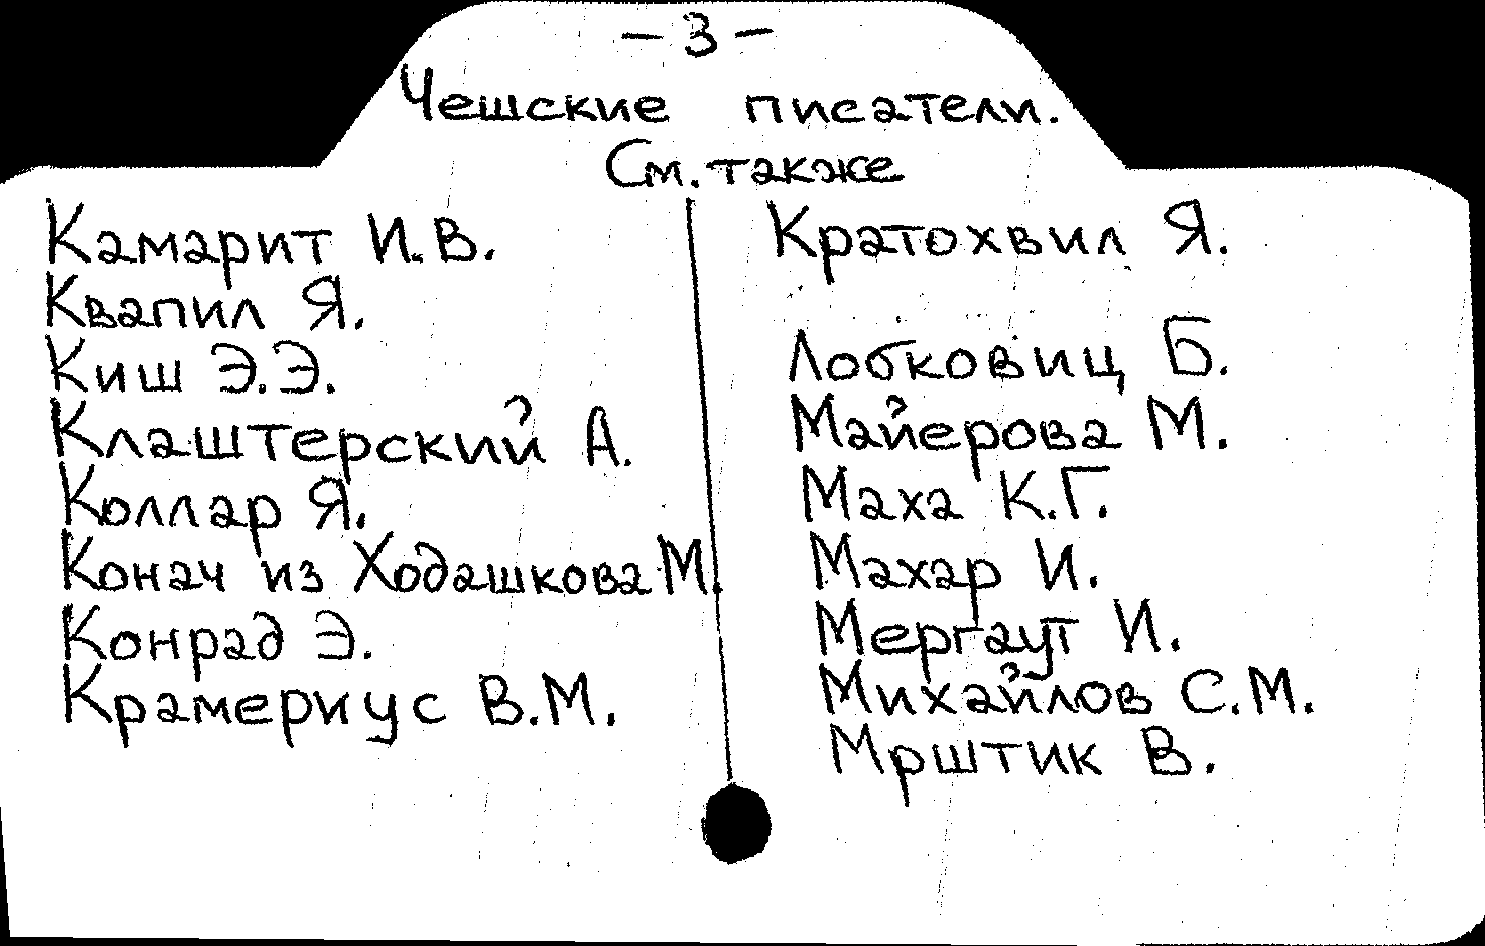 — 3 —
Чешские писатели.
См. также
Камарит И.В.
Квапил Я.
Киш Э.Э.
Клаштерский А.
Коллар Я.
Конач из Ходашкова М.
Конрад Э.
Крамериус В.М.
Кратохвил Я.
Лобковиц Б.
Майерова М.
Маха К.Г.
Махар И.
Мергаут И.
Михайлов С.М.
Мрштик В.